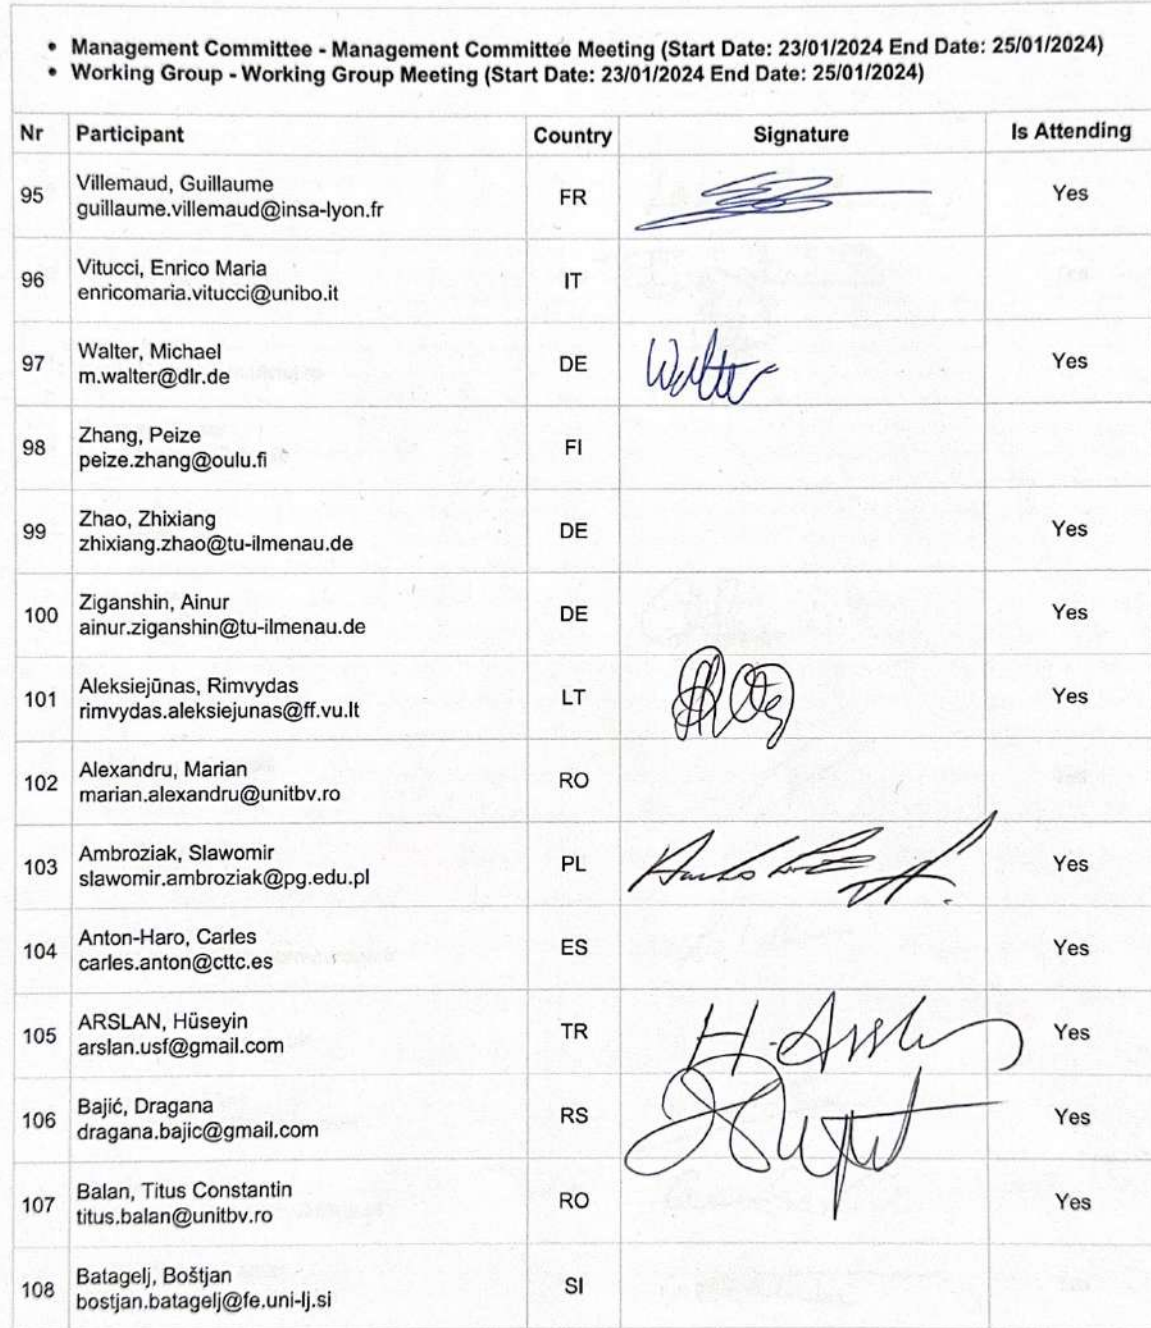 • Management Committee - Management Committee Meeting (Start Date: 23/01/2024 End Date: 25/01/2024)
• Working Group - Working Group Meeting (Start Date: 23/01/2024 End Date: 25/01/2024)
Nr Participant Country Signature Is Attending
95 Villemaud, Guillaume FR Yes
guillaume.villemaud@insa-lyon.fr
96 Vitucci, Enrico Maria IT
enricomaria.vitucci@unibo.it
97 Walter, Michael DE Walter Yes
m.walter@dlr.de
98 Zhang, Peize FI
peize.zhang@oulu.fi
99 Zhao, Zhixiang DE Yes
zhixiang.zhao@tu-ilmenau.de
100 Ziganshin, Ainur DE Yes
ainur.ziganshin@tu-ilmenau.de
101 Aleksiejūnas, Rimvydas LT Yes
rimvydas.aleksiejunas@ff.vu.lt
102 Alexandru, Marian RO
marian.alexandru@unitbv.ro
103 Ambroziak, Slawomir PL Yes
slawomir.ambroziak@pg.edu.pl
104 Anton-Haro, Carles ES Yes
carles.anton@cttc.es
105 ARSLAN, Hüseyin TR H. Arslan Yes
arslan.usf@gmail.com
106 Bajić, Dragana RS Yes
dragana.bajic@gmail.com
107 Balan, Titus Constantin RO Yes
titus.balan@unitbv.ro
108 Batagelj, Boštjan SI
bostjan.batagelj@fe.uni-lj.si